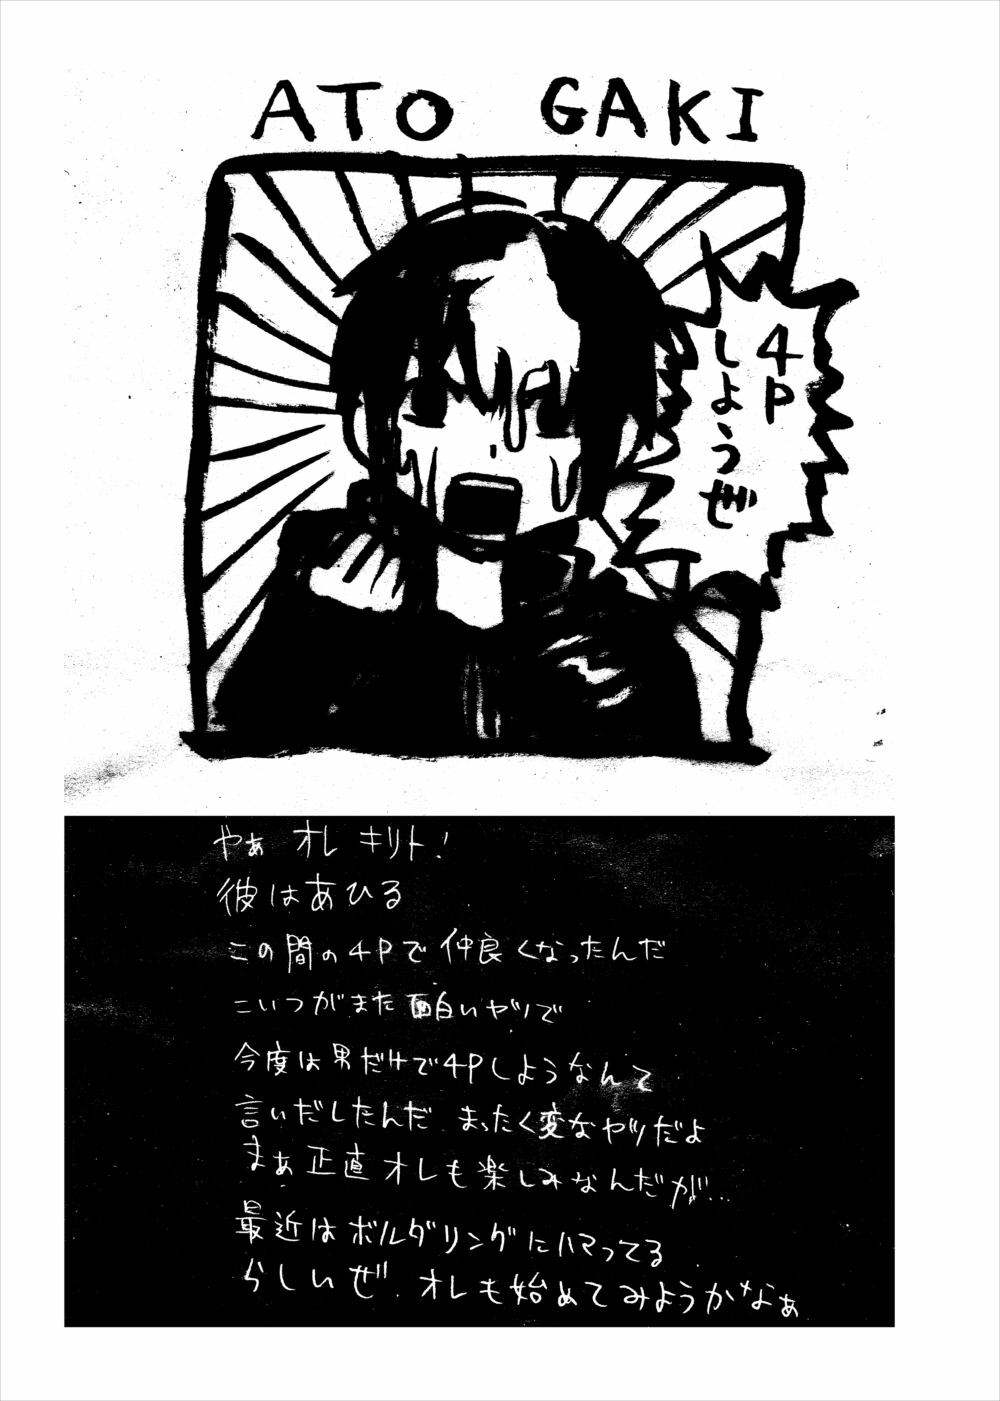 ATO GAKI
4P
しようぜ
やぁ オレ キリト!
彼はあひる
この間の4Pで仲良くなったんだ
こいつがまた面白いヤツで
今度は男だけで4Pしようなんて
言いだしたんだ まったく変なヤツだよ
まぁ正直オレも楽しみなんだが…
最近はボルダリングにハマってる
らしいぜ. オレも始めてみようかなぁ